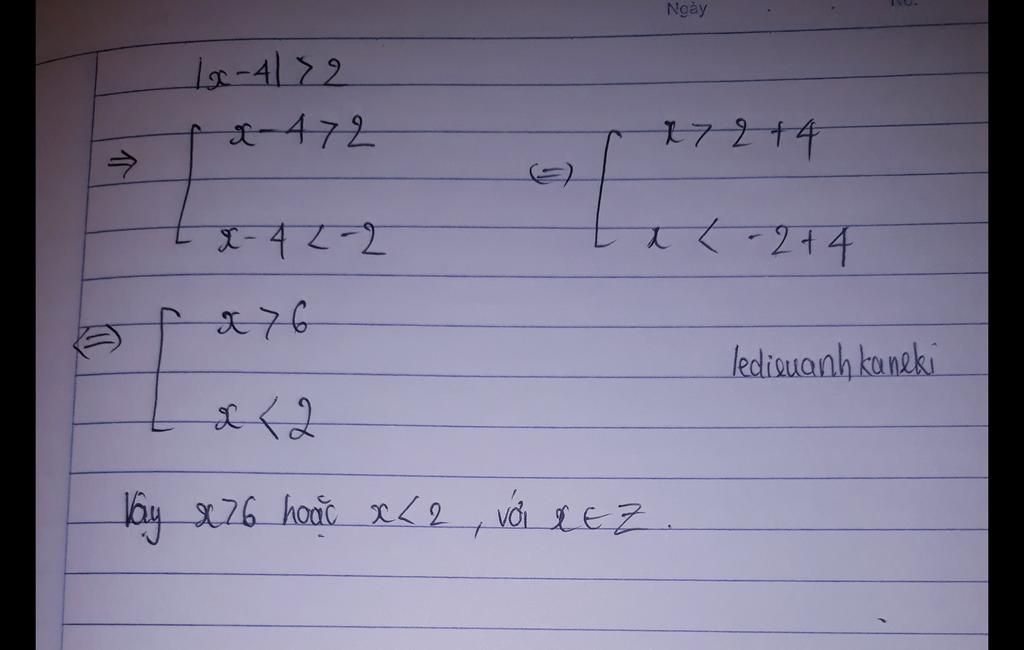 Ngày . .
|x-4| > 2
⇒ [ x-4 > 2
x-4 < -2
(=) [ x > 2+4
x < -2+4
<=> [ x > 6
x < 2
ledieuanhkaneki
Vậy x>6 hoặc x<2, với x ∈ Z.